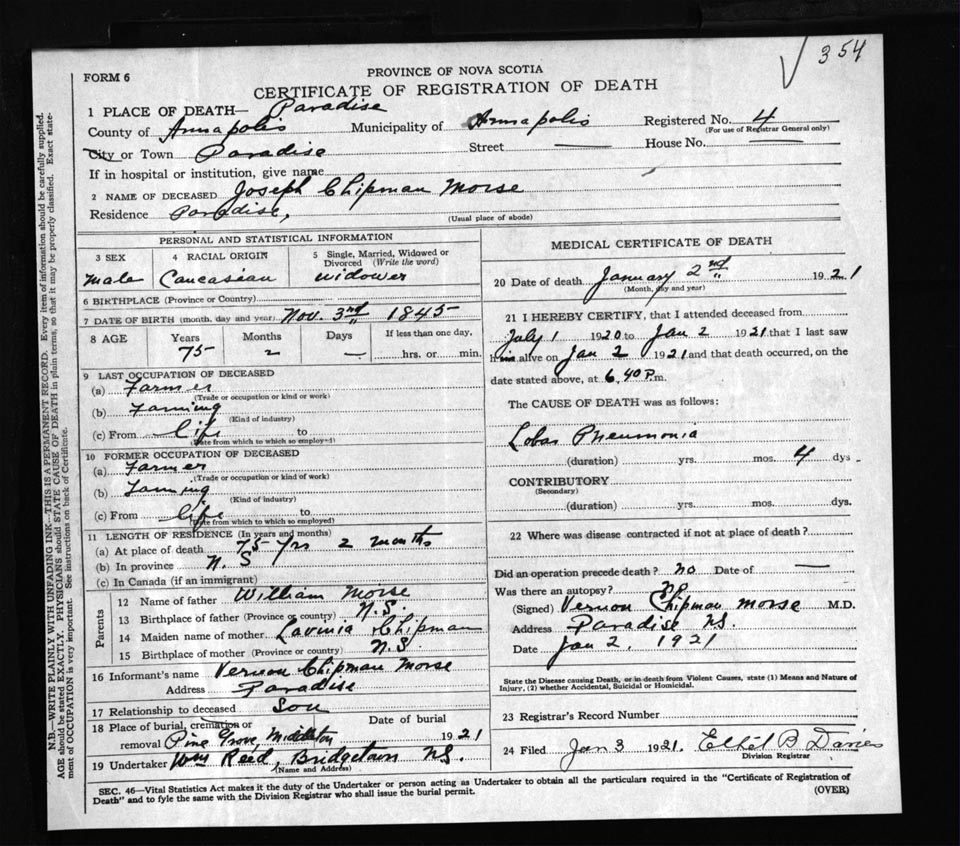 354
FORM 6
PROVINCE OF NOVA SCOTIA
CERTIFICATE OF REGISTRATION OF DEATH
1 PLACE OF DEATH— Paradise
County of Annapolis Municipality of Annapolis Registered No. 4
(For use of Registrar General only)
City or Town Paradise Street — House No. —
If in hospital or institution, give name
2 NAME OF DECEASED Joseph Chipman Morse
Residence Paradise,
(Usual place of abode)
PERSONAL AND STATISTICAL INFORMATION
3 SEX 4 RACIAL ORIGIN 5 Single, Married, Widowed or Divorced (Write the word)
male Caucasian widower
6 BIRTHPLACE (Province or Country)
7 DATE OF BIRTH (month, day and year) Nov. 3rd 1845
8 AGE Years Months Days If less than one day,
75 2 — hrs. or min.
9 LAST OCCUPATION OF DECEASED
(a) Farmer
(Trade or occupation or kind or work)
(b) Farming
(Kind of industry)
(c) From life to
(Date from which to which so employed)
10 FORMER OCCUPATION OF DECEASED
(a) Farmer
(Trade or occupation or kind of work)
(b) Farming
(Kind of industry)
(c) From life to
(Date from which to which so employed)
11 LENGTH OF RESIDENCE (In years and months)
(a) At place of death 75 yrs 2 months
(b) In province N. S
(c) In Canada (if an immigrant)
Parents
12 Name of father William Morse
13 Birthplace of father (Province or country) N.S.
14 Maiden name of mother Lavinia Chipman
15 Birthplace of mother (Province or country) N.S.
16 Informant's name Vernon Chipman Morse
Address Paradise
17 Relationship to deceased Son
18 Place of burial, cremation or Date of burial
removal Pine Grove, Middleton 1921
19 Undertaker Wm Reed, Bridgetown N.S.
(Name and Address)
MEDICAL CERTIFICATE OF DEATH
20 Date of death January 2nd 1921
(Month, day and year)
21 I HEREBY CERTIFY, that I attended deceased from
July 1 1920 to Jan 2 1921 that I last saw
him alive on Jan 2 1921 and that death occurred, on the
date stated above, at 6.40 P.m.
The CAUSE OF DEATH was as follows:
Lobar Pneumonia
(duration) yrs. mos. 4 dys.
CONTRIBUTORY
(Secondary)
(duration) yrs. mos. dys.
22 Where was disease contracted if not at place of death?
Did an operation precede death? no Date of —
Was there an autopsy? no
(Signed) Vernon Chipman Morse M.D.
Address Paradise N.S.
Date Jan 2, 1921
State the Disease causing Death, or in death from Violent Causes, state (1) Means and Nature of
Injury, (2) whether Accidental, Suicidal or Homicidal.
23 Registrar's Record Number
24 Filed Jan 3 1921. Ethel B Davies
Division Registrar
SEC. 46—Vital Statistics Act makes it the duty of the Undertaker or person acting as Undertaker to obtain all the particulars required in the "Certificate of Registration of
Death" and to fyle the same with the Division Registrar who shall issue the burial permit.
(OVER)
N.B.—WRITE PLAINLY WITH UNFADING INK—THIS IS A PERMANENT RECORD. Every item of information should be carefully supplied.
AGE should be stated EXACTLY. PHYSICIANS should STATE CAUSE OF DEATH in plain terms, so that it may be properly classified. Exact state-
ment of OCCUPATION is very important. See instructions on back of Certificate.